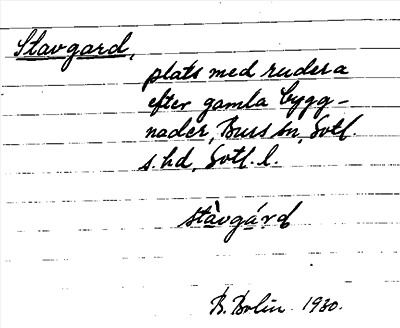 Stavgard,
plats med rudera
efter gamla bygg-
nader, Burs sn, Gotl.
s. hd, Gotl. l.
stàvgárd
B. Bolin 1930.